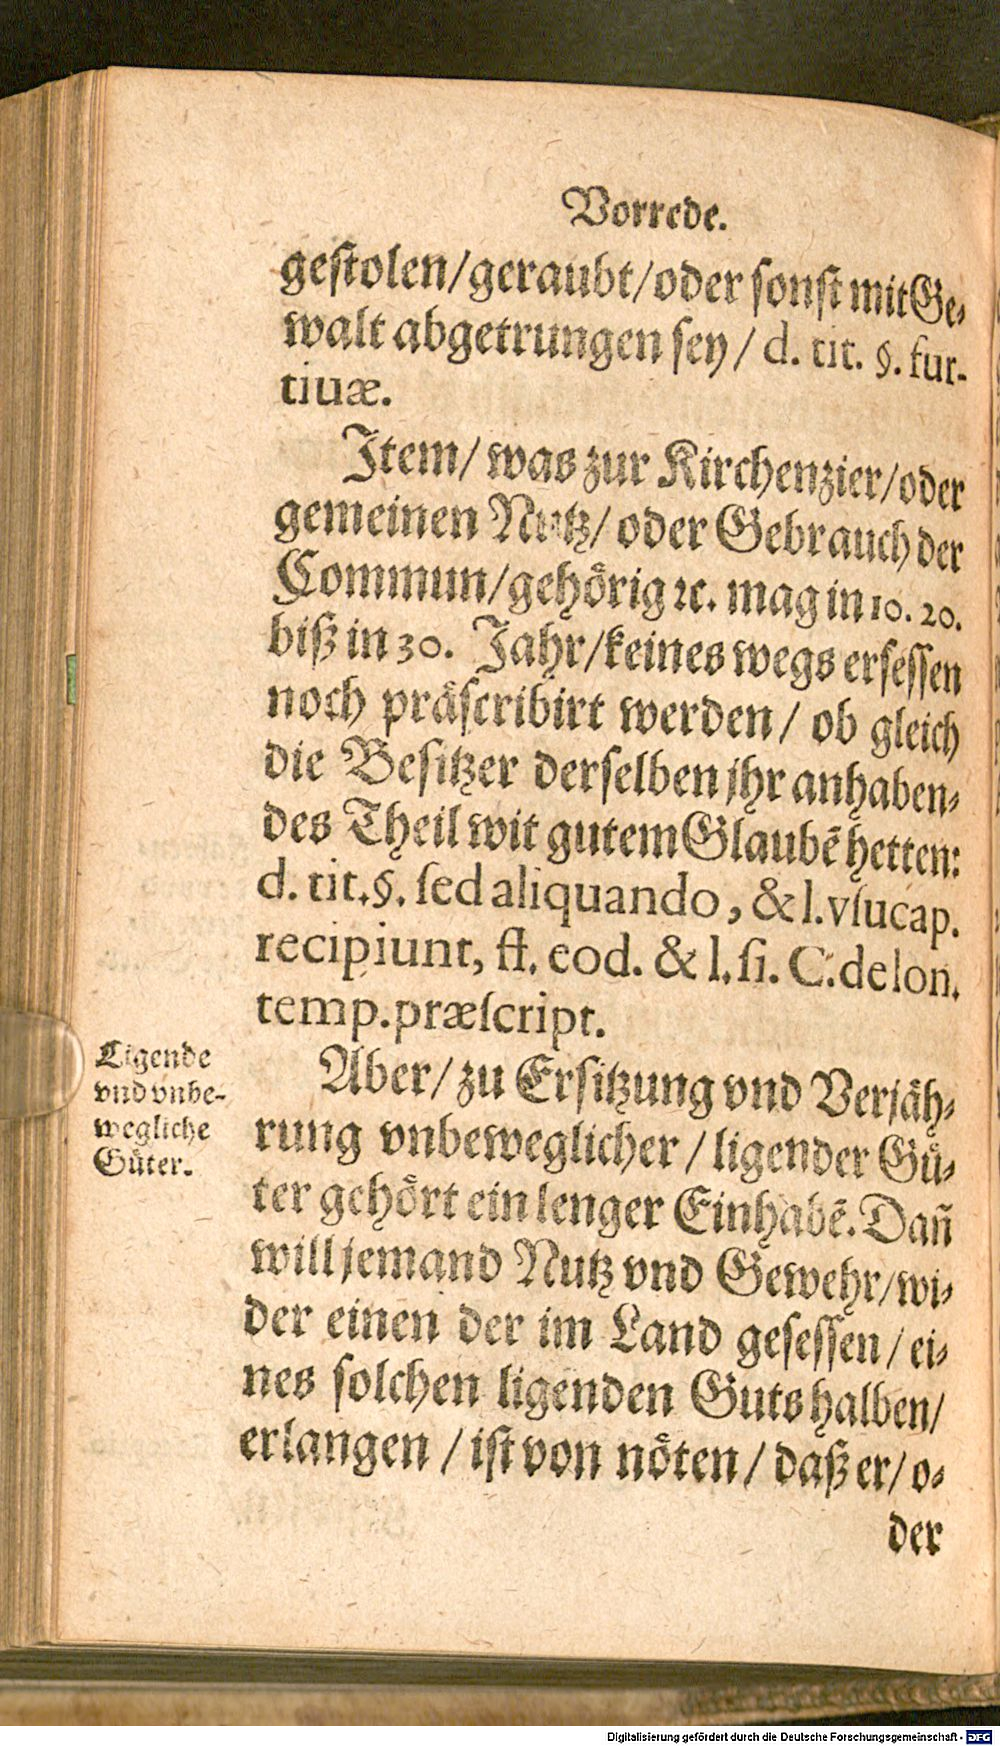 Vorrede.
gestolen/geraubt/oder sonst mit Ge-
walt abgetrungen sey/ d. tit. §. fur-
tiuæ.
Item/ was zur Kirchenzier/oder
gemeinen Nutz/ oder Gebrauch der
Commun/gehoͤrig ꝛc. mag in 10. 20.
biß in 30. Jahr/keines wegs ersessen
noch praͤscribirt werden/ ob gleich
die Besitzer derselben jhr anhaben-
des Theil wit gutem Glaubẽ hetten:
d. tit. §. sed aliquando, & l. vsucap.
recipiunt, ff. eod. & l. si. C. de lon.
temp. præscript.
Ligende
vnd vnbe-
wegliche
Guͤter.
Aber/ zu Ersitzung vnd Verjaͤh-
rung vnbeweglicher / ligender Guͤ-
ter gehoͤrt ein lenger Einhabẽ. Dañ
will jemand Nutz vnd Gewehr/wi-
der einen der im Land gesessen / ei-
nes solchen ligenden Guts halben/
erlangen / ist von noͤten / daß er/ o-
der
Digitalisierung gefördert durch die Deutsche Forschungsgemeinschaft - DFG